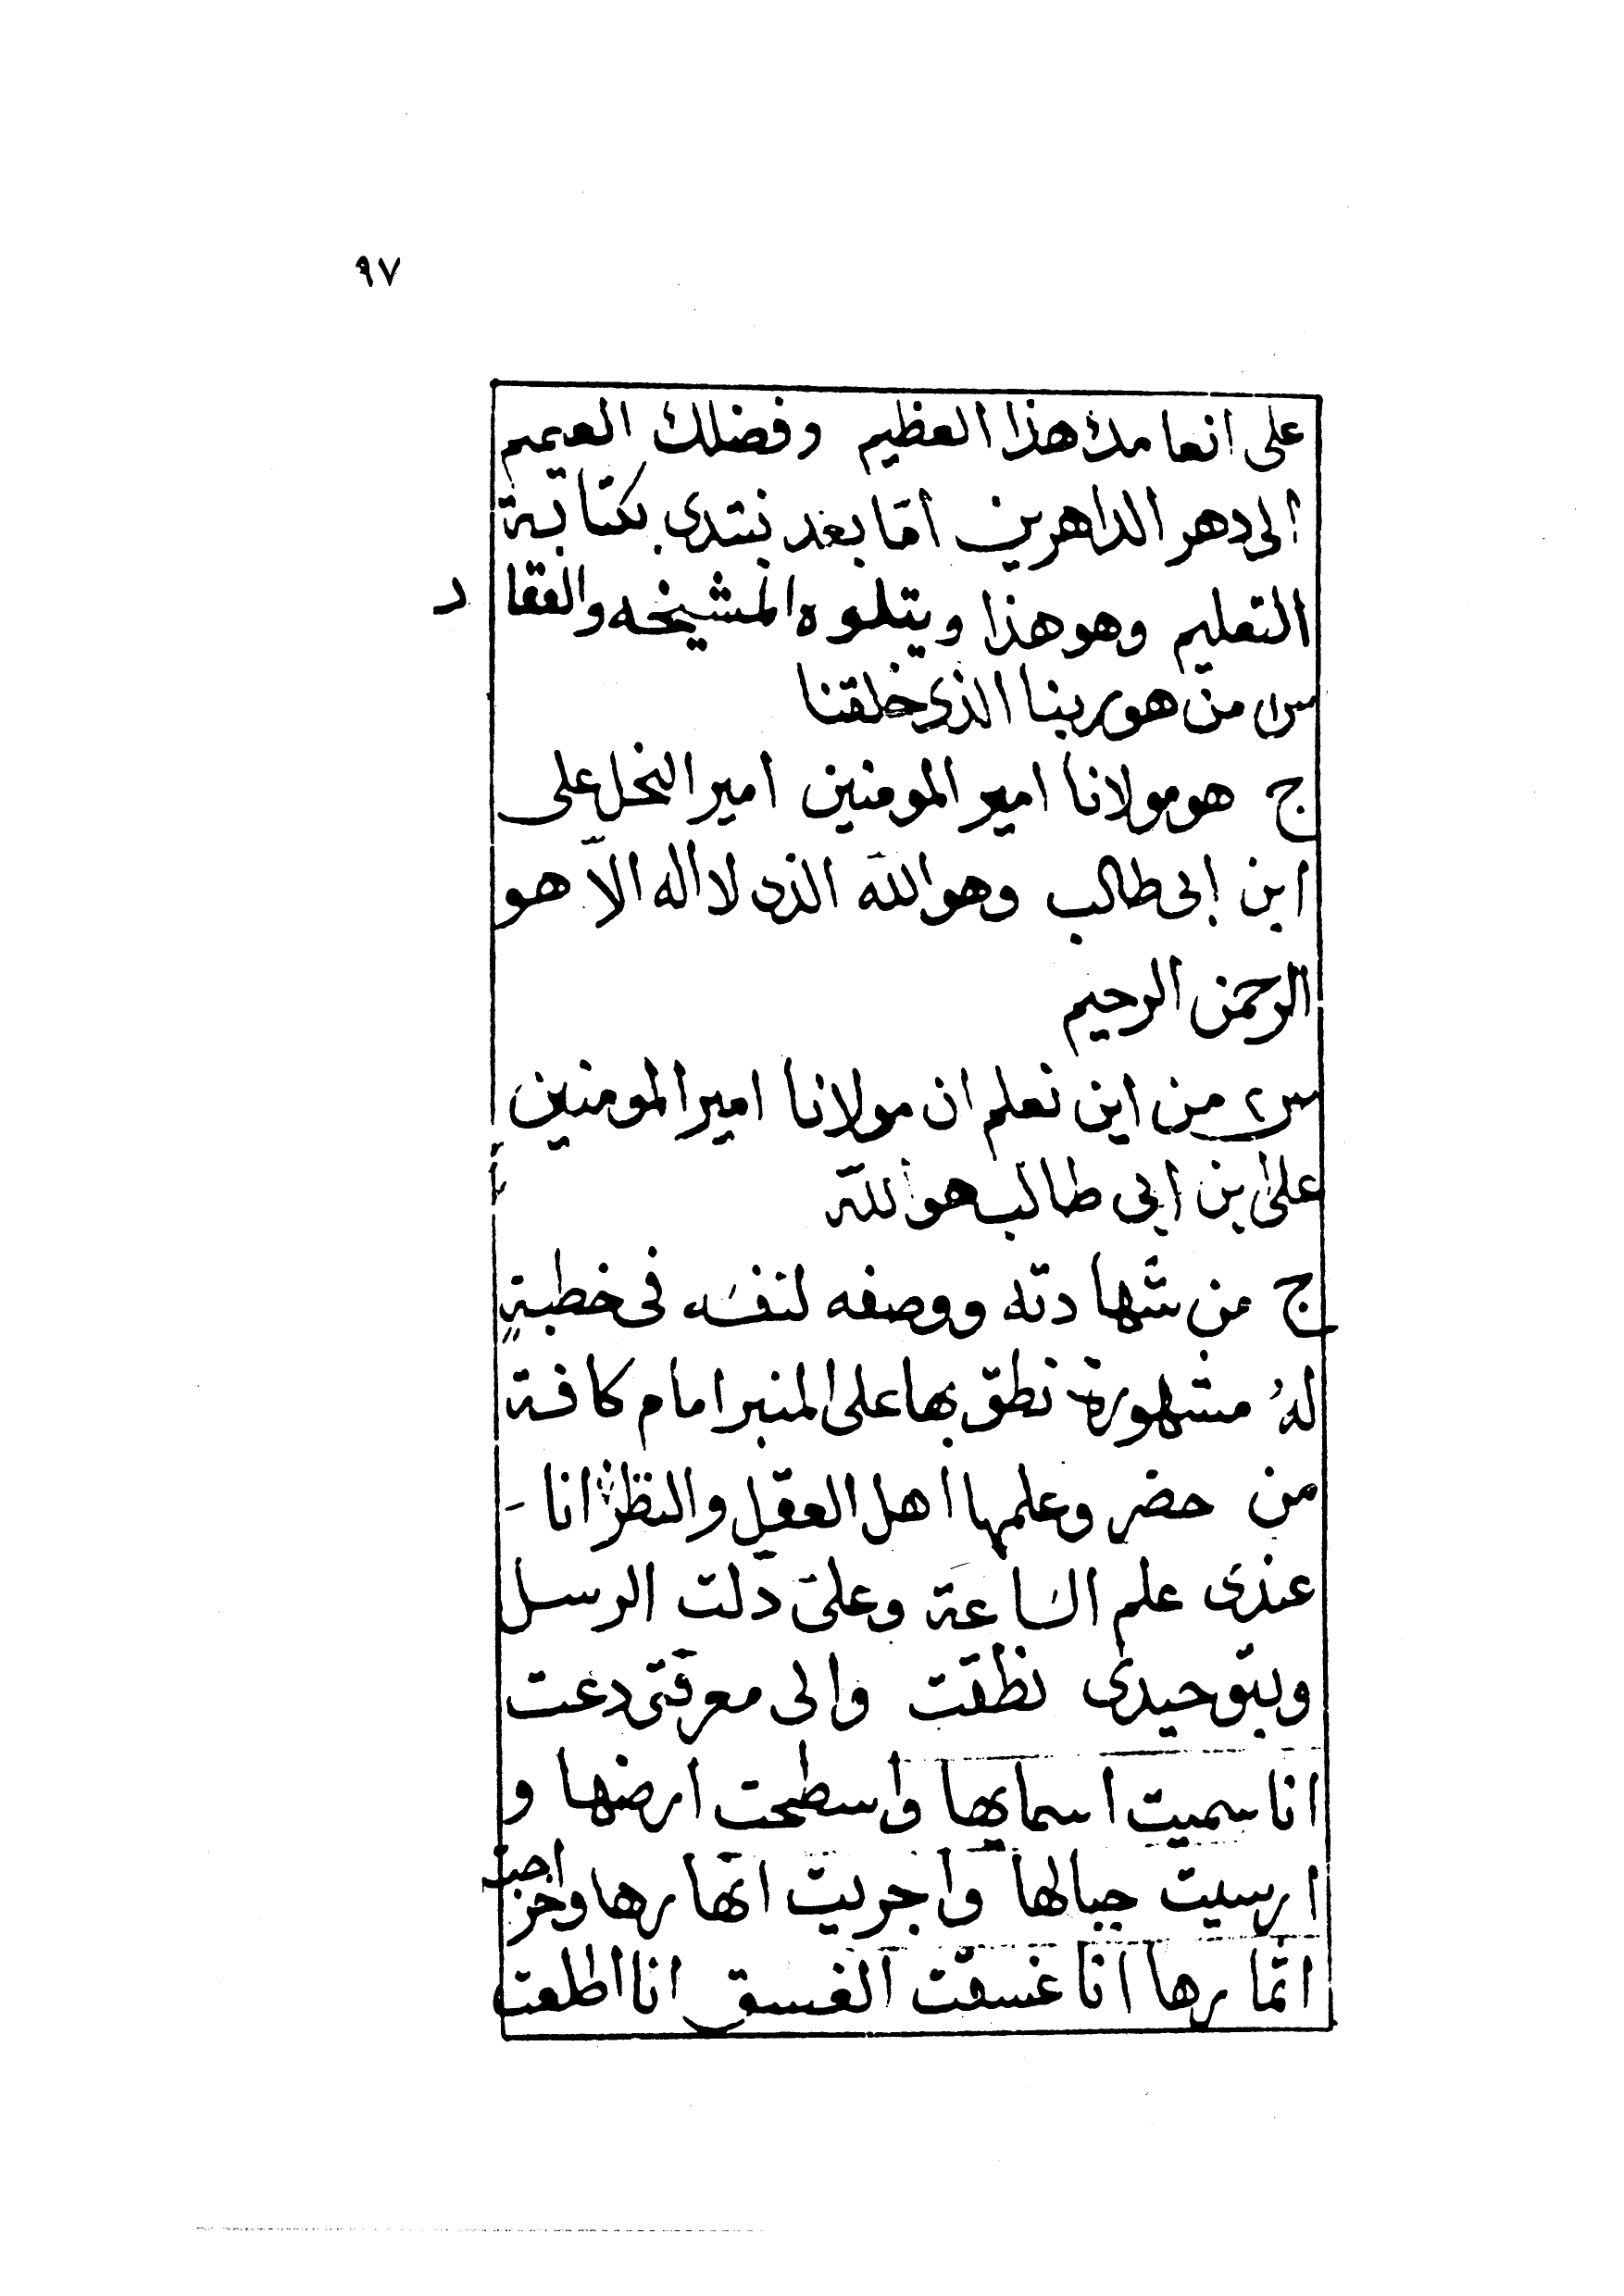 ٩٧
على انعامك هذا العظيم وفضلك العميم
الى دهر الداهرين امّا بعد نبتدى بكتابة
التعليم وهو هذا ويتلوه المشيخه والعقاد
س١ من هو ربنا الذى خلقنا
ج هو مولانا امير المومنين امير النحل على
ابن ابى طالب وهو الله الذى لا اله الاّ هو
الرحمن الرحيم
س٢ من اين نعلم ان مولانا امير المومنين
على بن ابى طالب هو الله
ج من شهادته ووصفه لنفسه فى خطبةٍ
لهُ مشهورة نطق بها على المنبر امام كافة
من حضر وعلمها اهل العقل والنظر انا
عندى علم الساعة وعلىّ دلت الرسل
وبتوحيدى نطقت والى معرفتى دعت
انا سميت اسمايها واسطحت ارضها و
ارسيت جبالها واجريت انهارها واخرجت
اثمارها انا غسقت الغسق انا اطلعت